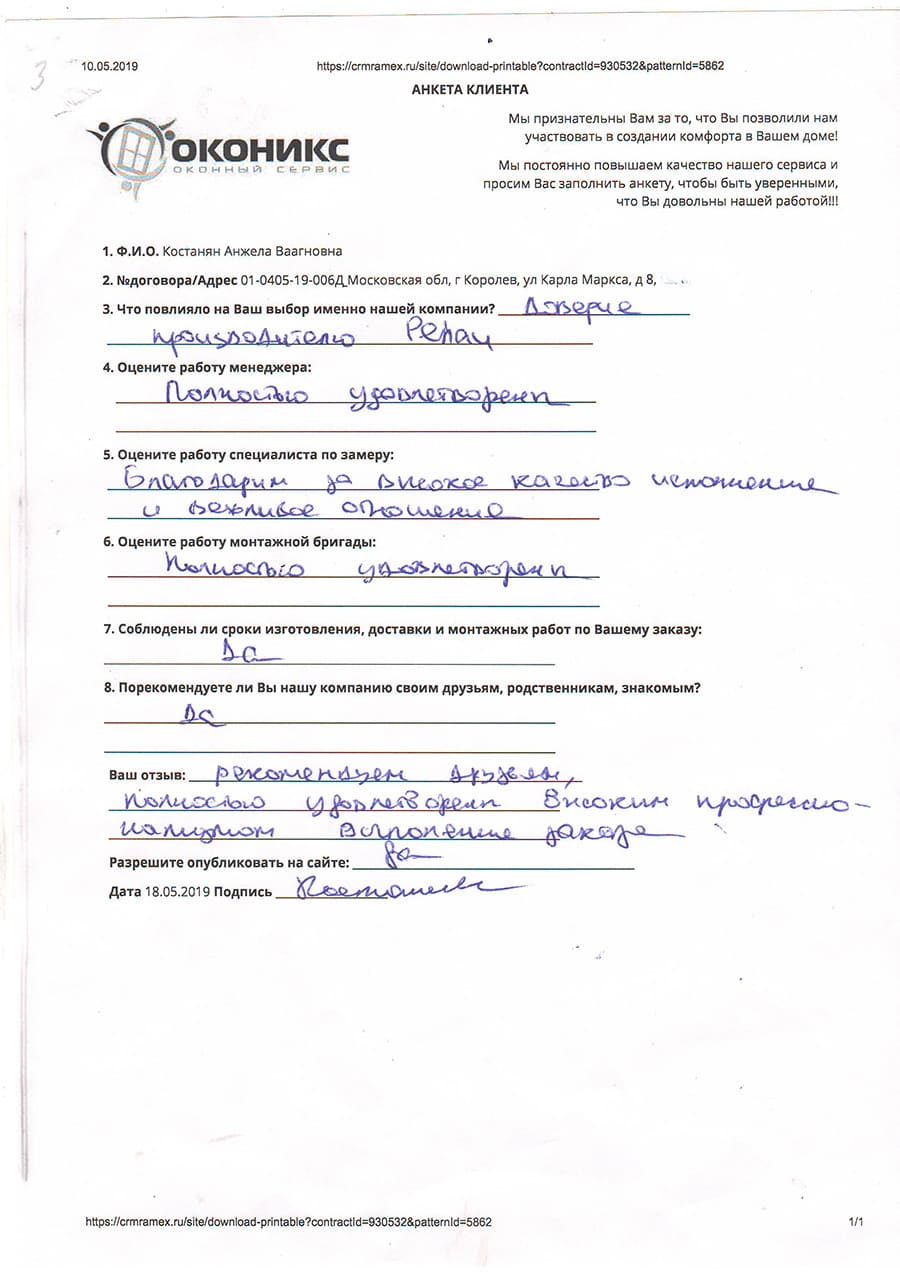 3
10.05.2019 https://crmramex.ru/site/download-printable?contractId=930532&patternId=5862
АНКЕТА КЛИЕНТА
Мы признательны Вам за то, что Вы позволили нам
участвовать в создании комфорта в Вашем доме!
ОКОНИКС
ОКОННЫЙ СЕРВИС
Мы постоянно повышаем качество нашего сервиса и
просим Вас заполнить анкету, чтобы быть уверенными,
что Вы довольны нашей работой!!!
1. Ф.И.О. Костанян Анжела Ваагновна
2. №договора/Адрес 01-0405-19-006Д Московская обл, г Королев, ул Карла Маркса, д 8,
3. Что повлияло на Ваш выбор именно нашей компании? Доверие
производителю Рехау
4. Оцените работу менеджера:
Полностью удовлетворен
5. Оцените работу специалиста по замеру:
Благодарим за високое качество
и вежливое отношение
6. Оцените работу монтажной бригады:
Полностью удовлетворен
7. Соблюдены ли сроки изготовления, доставки и монтажных работ по Вашему заказу:
Да
8. Порекомендуете ли Вы нашу компанию своим друзьям, родственникам, знакомым?
Да
Ваш отзыв: рекомендуем друзьям,
полностью удовлетворен високим профессио-
нализмом заказа
Разрешите опубликовать на сайте: да
Дата 18.05.2019 Подпись
https://crmramex.ru/site/download-printable?contractId=930532&patternId=5862 1/1